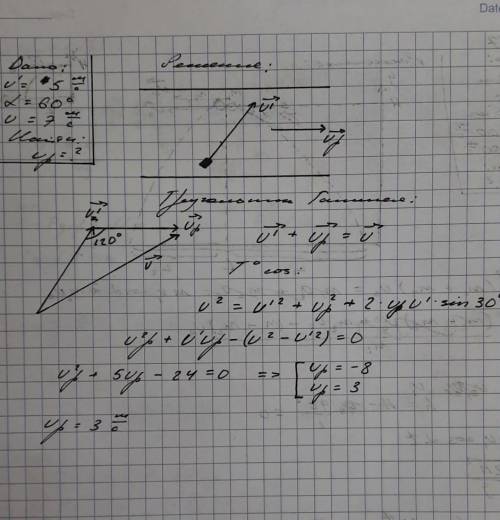 Date
Дано:
v' = 5 м/с
α = 60°
v = 7 м/с
Найти:
vр = ?
Решение:
v⃗'
v⃗р
Треугольник Галилея:
v⃗'
120°
v⃗р
v⃗
v⃗' + v⃗р = v⃗
T° cos:
v² = v'² + vр² + 2·vр v'·sin 30°
v²р + v'vр − (v² − v'²) = 0
v²р + 5vр − 24 = 0 => [ vр = −8
vр = 3
vр = 3 м/с